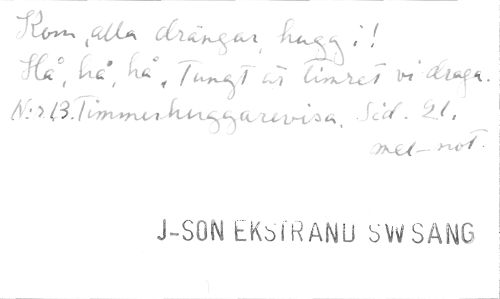 Kom, alla drängar, hugg i!
Hå, hå, hå, Tungt är timret vi draga.
N:r 13. Timmerhuggarevisa. Sid. 21.
mel-not.
J-SON EKSTRAND SW SANG